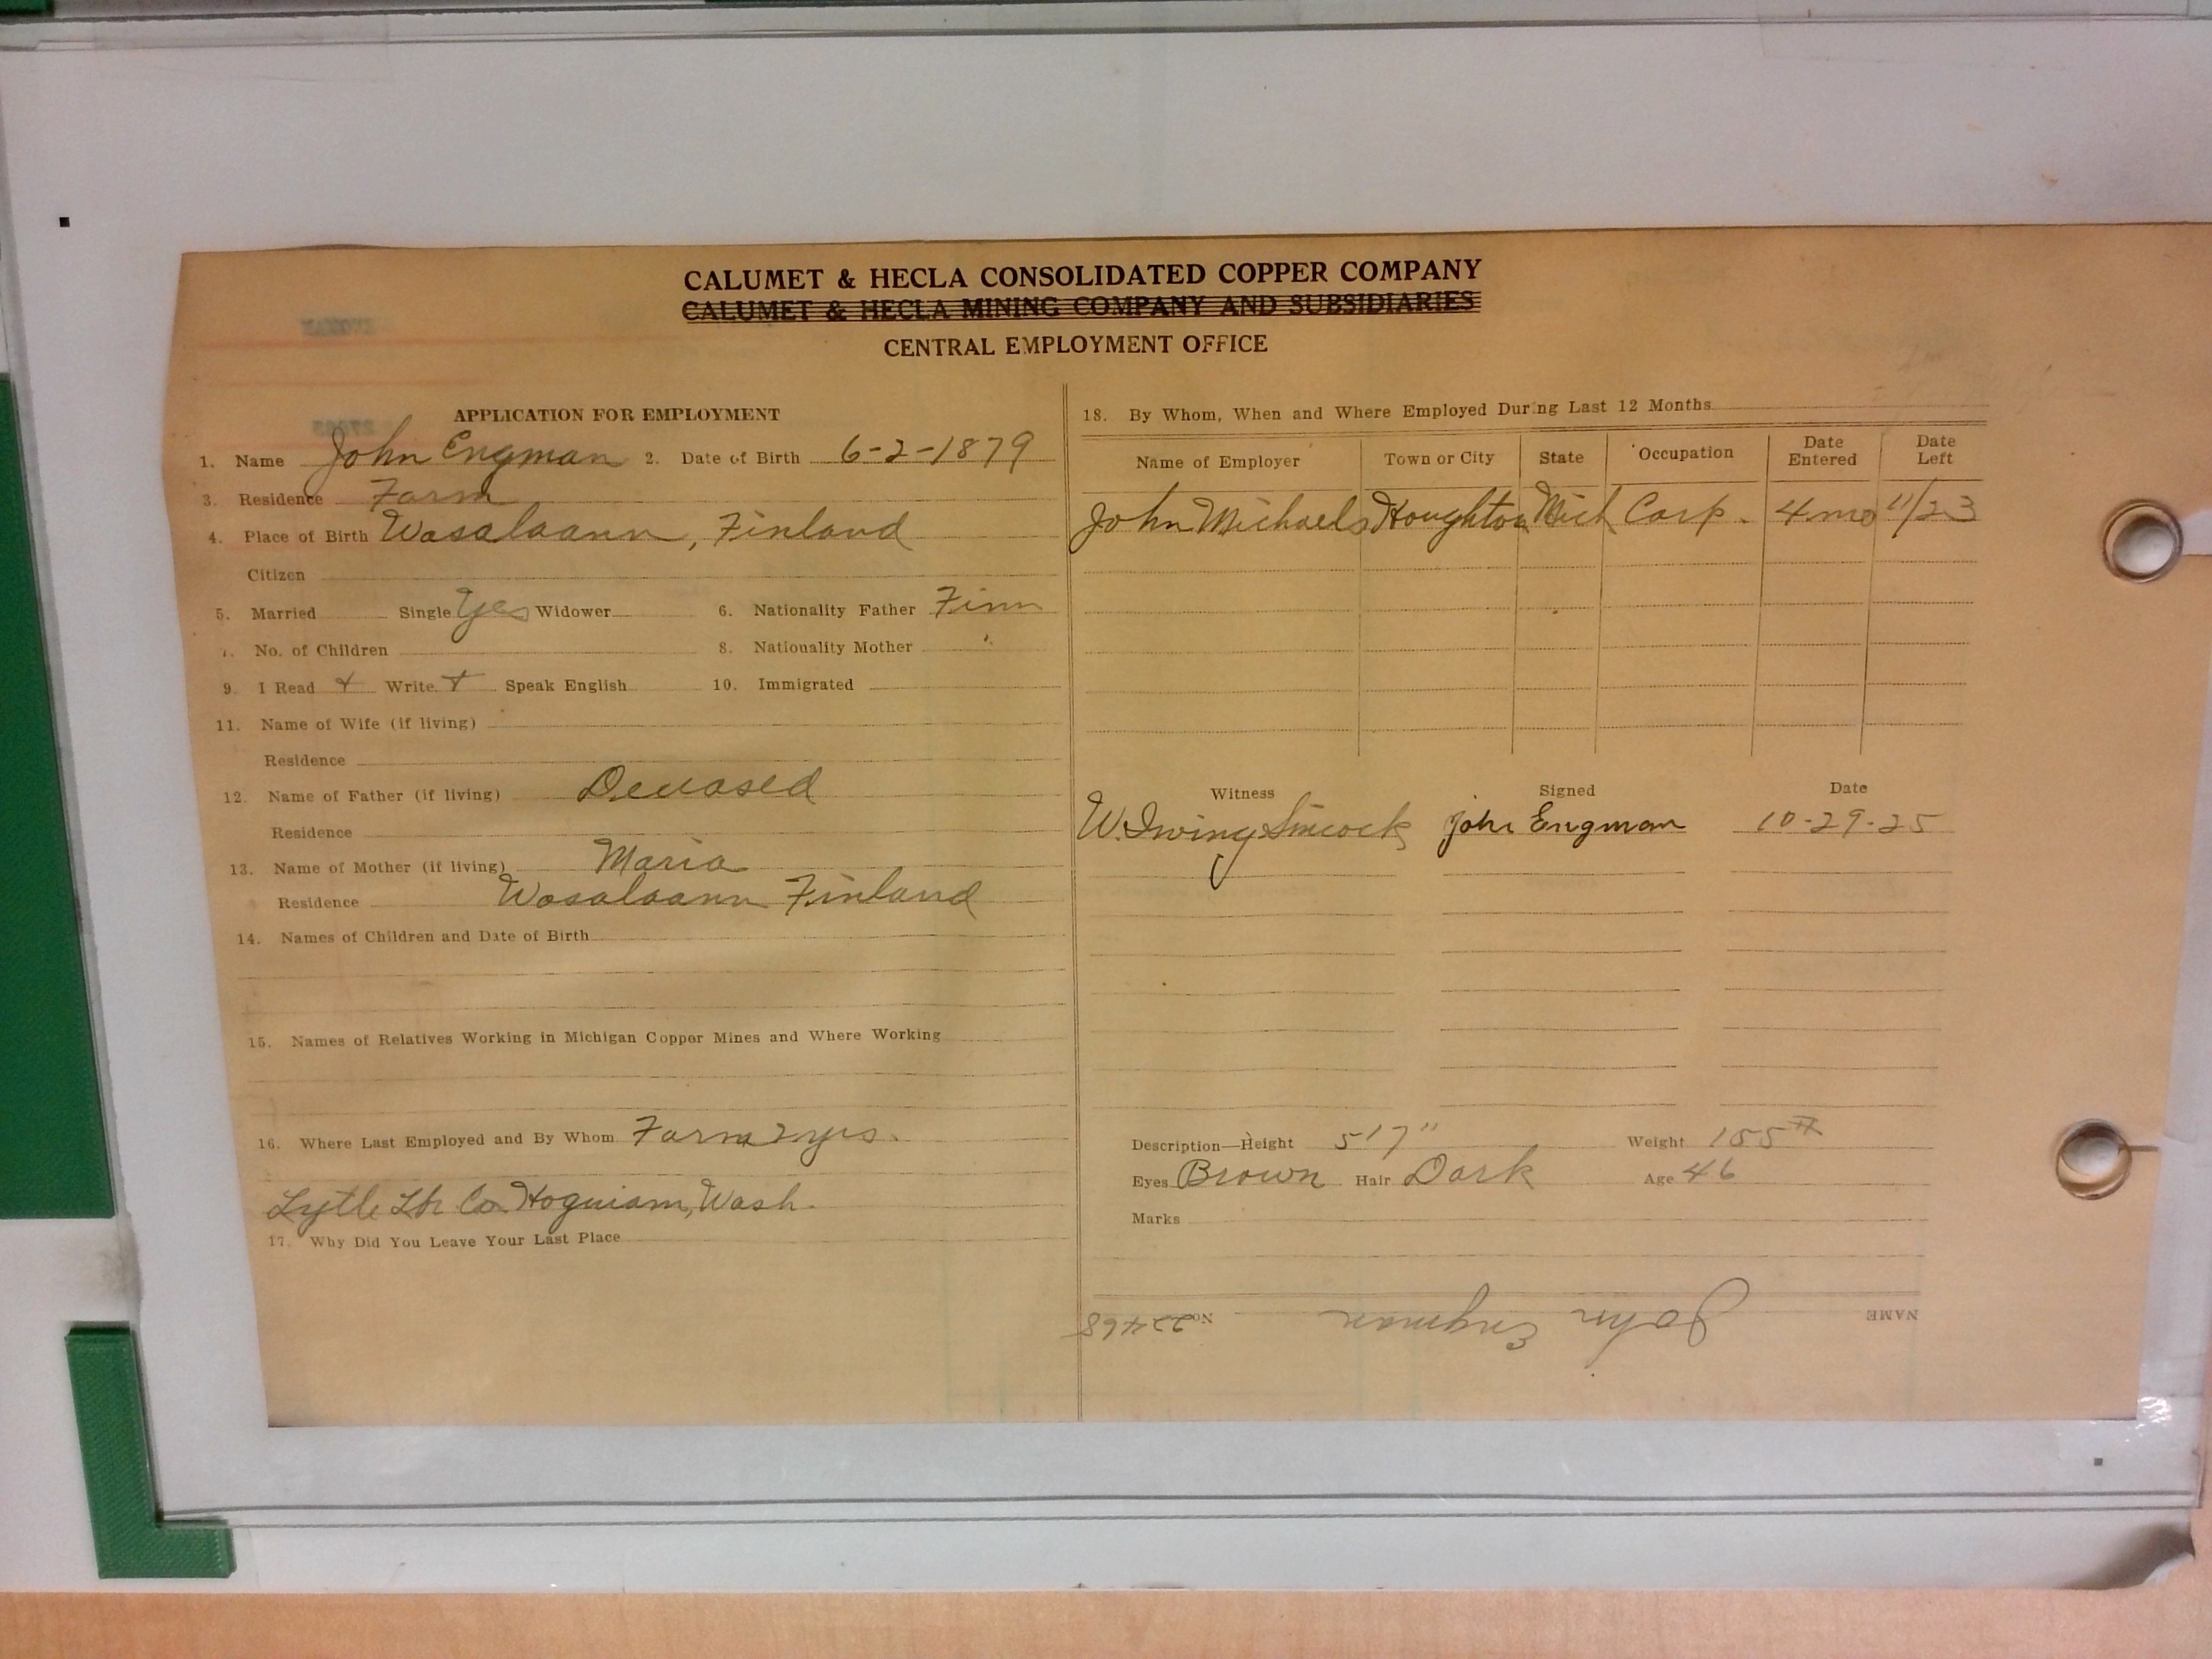 CALUMET & HECLA CONSOLIDATED COPPER COMPANY
CALUMET & HECLA MINING COMPANY AND SUBSIDIARIES
CENTRAL EMPLOYMENT OFFICE
APPLICATION FOR EMPLOYMENT
1. Name John Engman 2. Date of Birth 6-2-1879
3. Residence Farm
4. Place of Birth Wasalaann, Finland
Citizen
5. Married Single Yes Widower 6. Nationality Father Finn
No. of Children 8. Nationality Mother "
9. I Read + Write + Speak English 10. Immigrated
11. Name of Wife (if living)
Residence
12. Name of Father (if living) Deceased
Residence
13. Name of Mother (if living) Maria
Residence Wasalaann Finland
14. Names of Children and Date of Birth
15. Names of Relatives Working in Michigan Copper Mines and Where Working
16. Where Last Employed and By Whom Farm 2 yrs.
Lytle Lbr Co. Hoquiam, Wash.
17. Why Did You Leave Your Last Place
18. By Whom, When and Where Employed During Last 12 Months
Name of Employer Town or City State Occupation Date Entered Date Left
John Michaels Houghton Mich Carp. 4 mo 11/23
Witness Signed Date
W. Irving Sincock John Engman 10-29-25
Description—Height 5'7" Weight 155#
Eyes Brown Hair Dark Age 46
Marks
NAME John Engman No. 22468